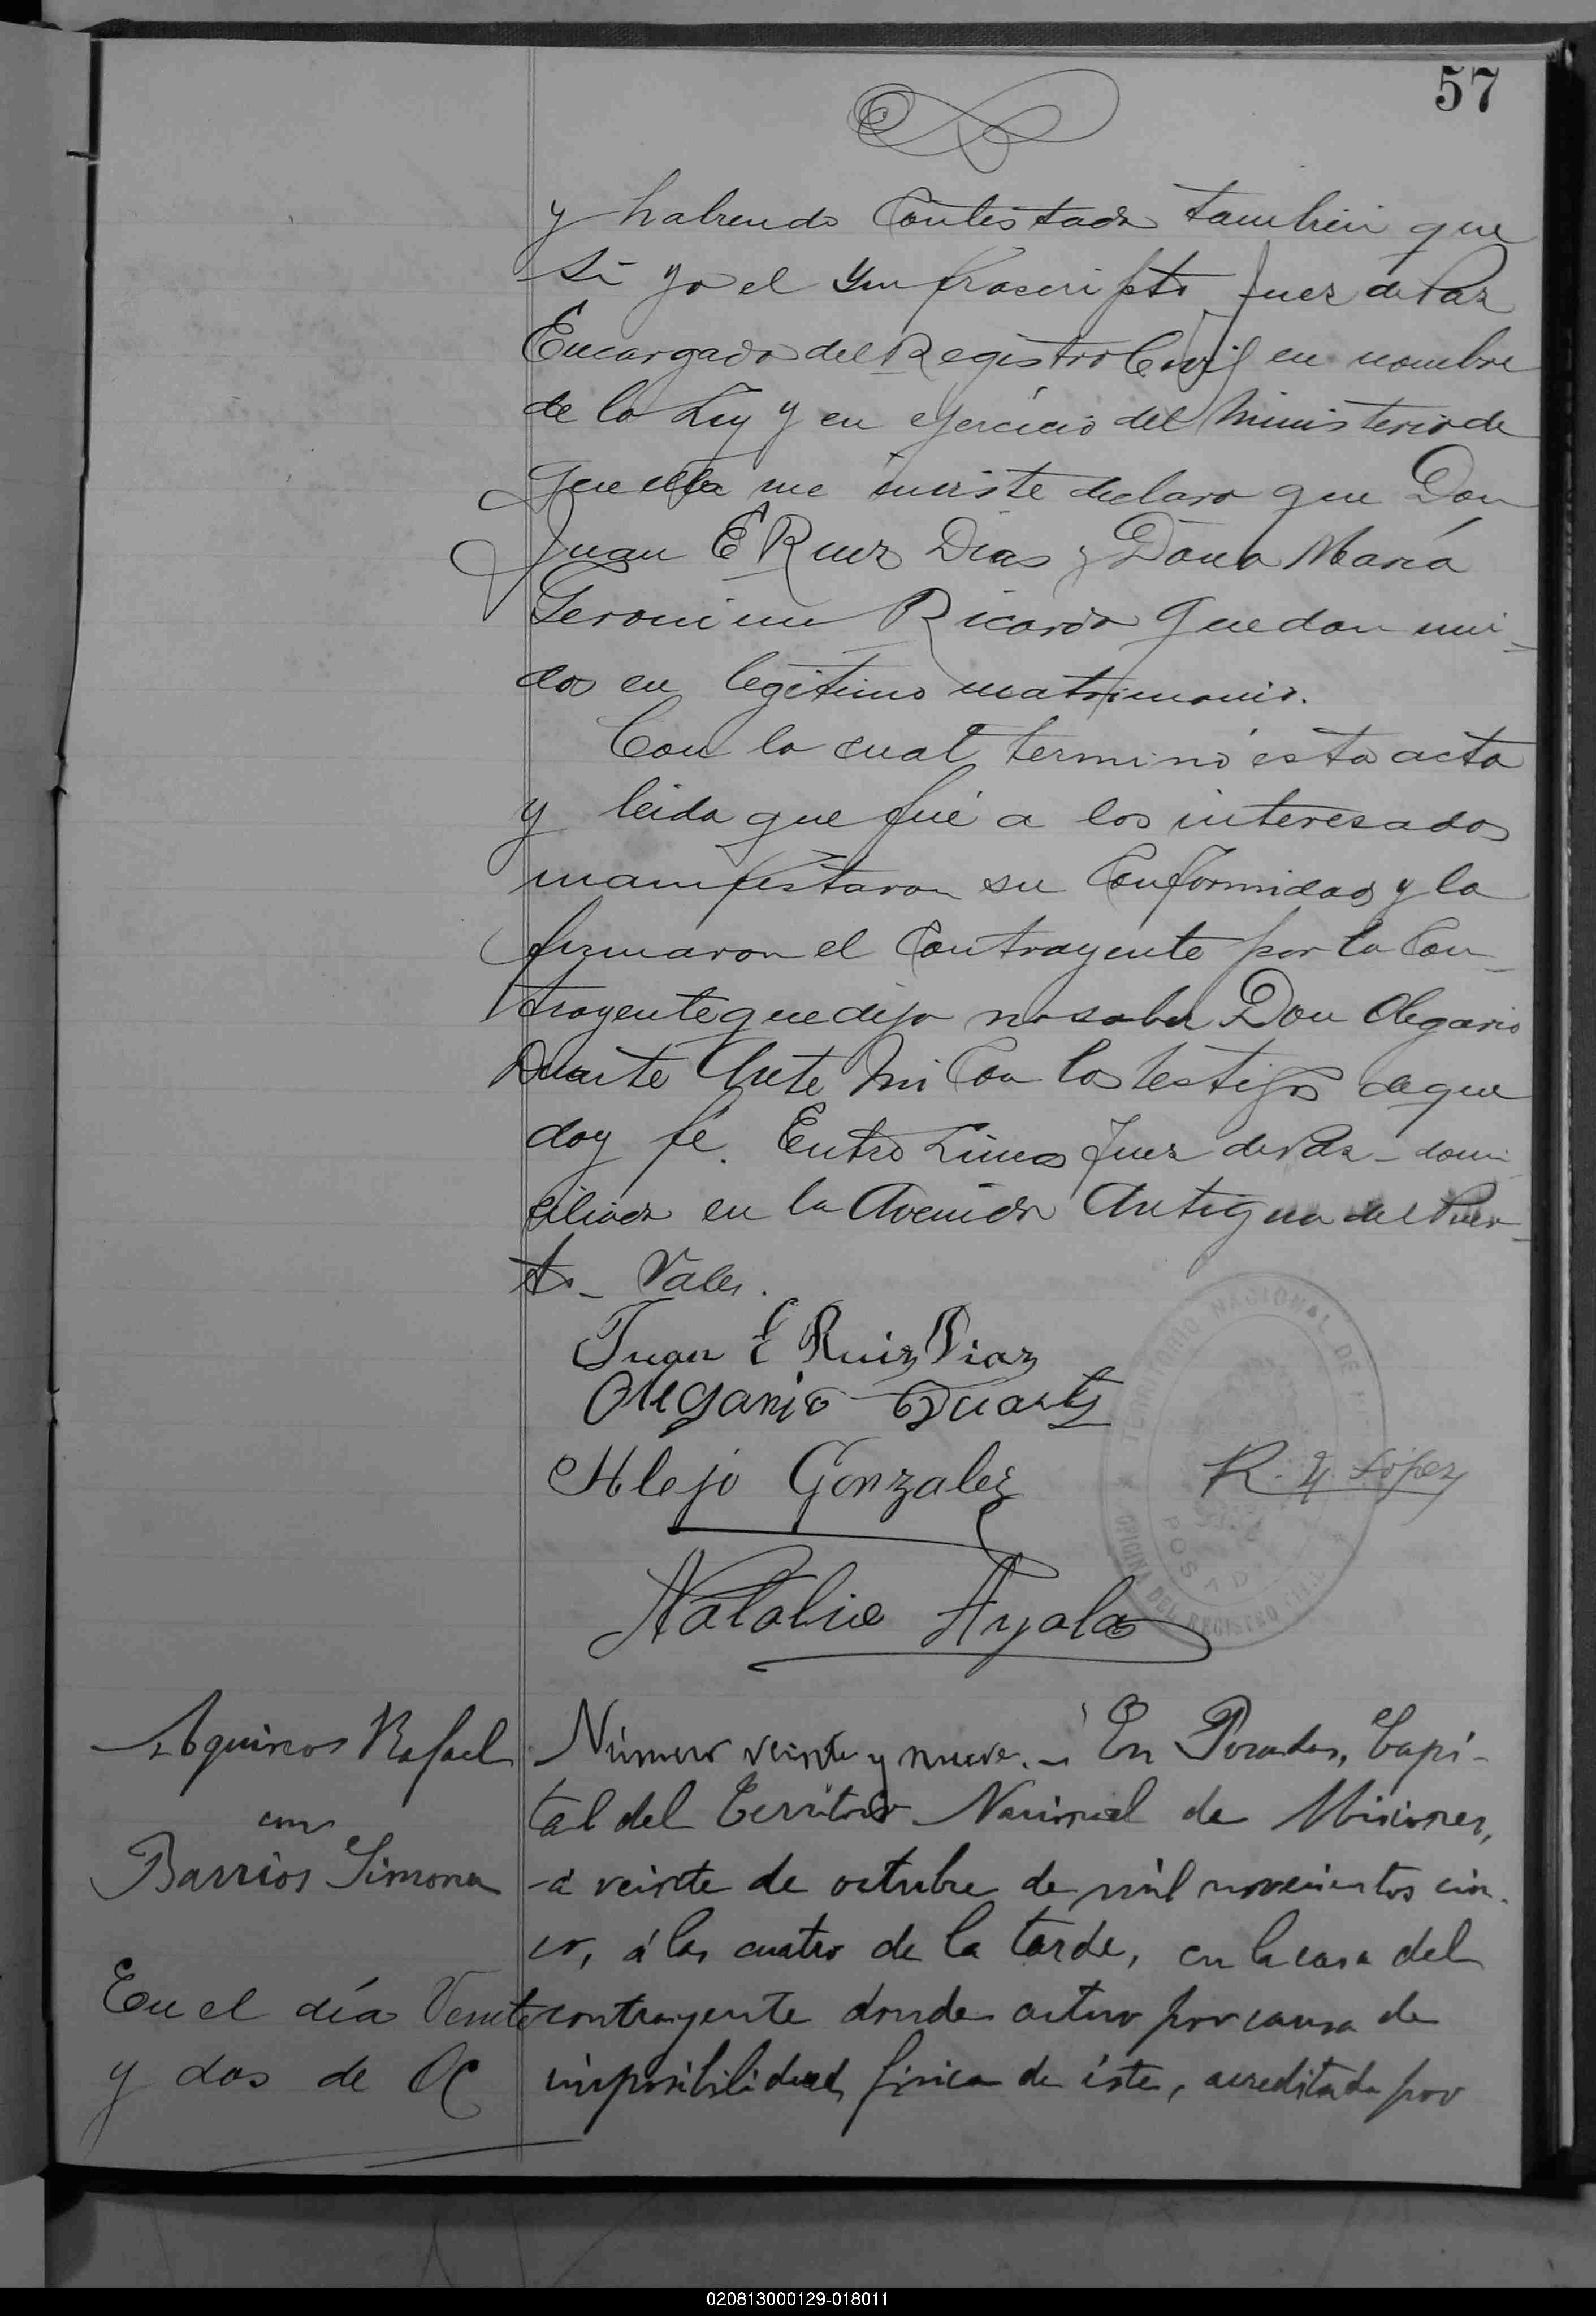 57
y habiendo Contestado tambien que
Si yo el Ynfrascripto Juez de Paz
Encargado del Registro Civil en nombre
de la Ley y en ejercicio del Ministerio de
que ella me inviste declaro que Don
Juan E Ruiz Dias y Doña María
Geronima Ricardo quedan uni-
dos en legitimo matrimonio.
Con lo cual terminó esta acta
y leida que fué a los interesados
manifestaron su Conformidad y la
firmaron el Contrayente por la Con-
trayente que dijo no saber Don Olegario
Duarte Ante Mi Con los testigos de que
doy fé. Entre Lineas Juez de Paz - domi
ciliada en la Avenida Antigua del Puer-
to - Valen.
Juan E Ruiz Diaz
Olegario Duarte
Alejo Gonzalez
R. Y. López
Natalicio Ayala
TERRITORIO NACIONAL DE
POSADAS
OFICINA DEL REGISTRO CIVIL
Aquinos Rafael
con
Barrios Simona
En el día Veinte
y dos de Oc
Número veinte y nueve. - En Posadas, Capi-
tal del Territorio Nacional de Misiones,
á veinte de octubre de mil novecientos cin-
co, á las cuatro de la tarde, en la casa del
contrayente donde actuo por causa de
imposibilidad física de éste, acreditada por
020813000129-018011